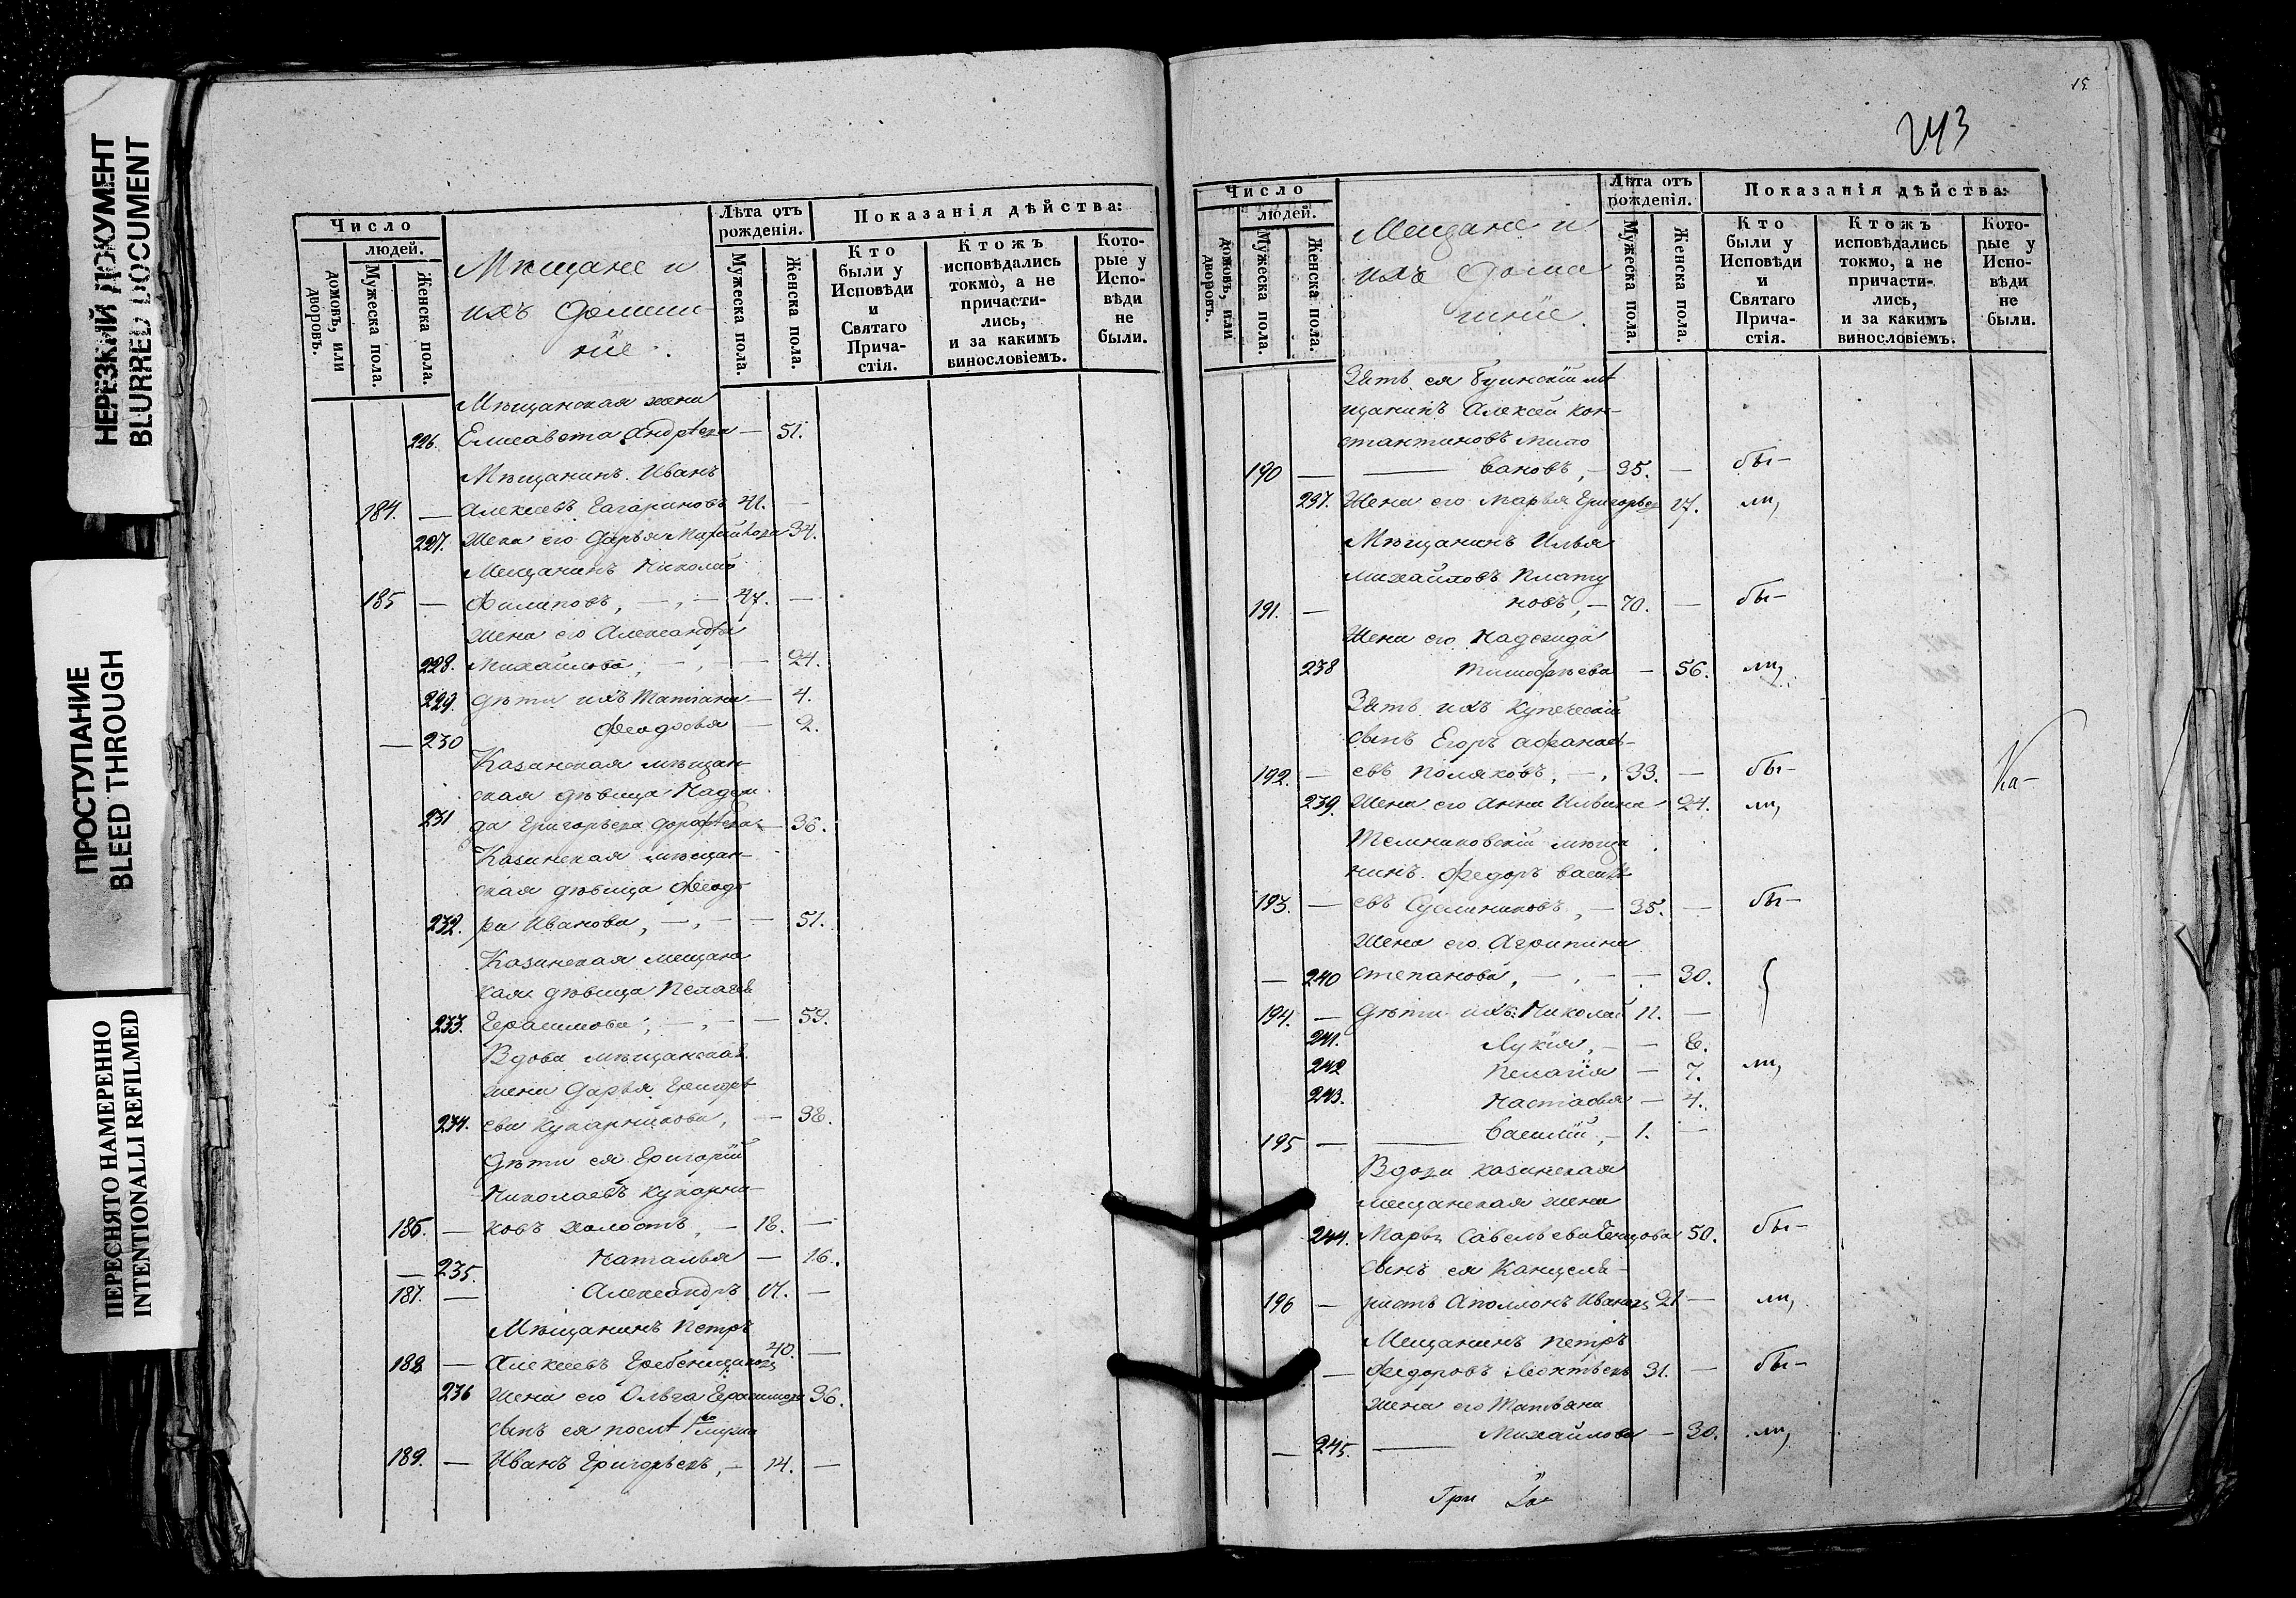 НЕРЕЗКИЙ ДОКУМЕНТ
BLURRED DOCUMENT
ПРОСТУПАНИЕ
BLEED THROUGH
ПЕРЕСНЯТО НАМЕРЕННО
INTENTIONALLI REFILMED
Число
людей.
домовъ, или дворовъ.
Мужеска пола.
Женска пола.
Мѣщане и
ихъ домаш-
ніе.
Лѣта отъ рожденія.
Мужеска пола.
Женска пола.
Показанія дѣйства:
Кто были у Исповѣди и Святаго Прича- стія.
Ктожъ исповѣдались токмо, а не причасти- лись, и за какимъ винословіемъ.
Кото- рые у Испо- вѣди не были.
Мѣщанская жена
226. Елисавета Андрѣева — 51.
Мѣщанинъ Иванъ
184. — Алексѣевъ Гагариновъ 41. —
227. Жена его Дарья 34.
Мещанинъ Николай
185 — Филиповъ, — , — 47. —
Жена его Александра
228. Михайлова, — , — — 24.
229. Дѣти ихъ Татіана — 4.
— 230 Феодосья — 2.
Казанская мѣщан-
ская дѣвица Надеж
231 да Григорьева Дорофѣева — 36.
Казанская мѣщан-
ская дѣвица Феодо
232. ра Иванова, — , — — 51.
Казанская мещанс
кая дѣвица Пелагѣя
233. Герасимова, — , — — 59.
Вдова мѣщанская
жена Дарья Григорь
234. ева Кукарникова, — 38.
Дѣти ея Григорій
Николаевъ Кукарни-
186. — ковъ холостъ, — 18. —
— 235. Наталья — 16.
187. — Александръ 12. —
Мѣщанинъ Петръ
188 — Алексѣевъ Гребенщиковъ 40. —
236 Жена его Ольга Герасимова 36.
сынъ ея послѣ 1го мужа
189. — Иванъ Григорьевъ, — 14. —
15
243
Число
людей.
домовъ, или дворовъ.
Мужеска пола.
Женска пола.
Мещане и
ихъ дома
шніе.
Лѣта отъ рожденія.
Мужеска пола.
Женска пола.
Показанія дѣйства:
Кто были у Исповѣди и Святаго Прича- стія.
Ктожъ исповѣдались токмо, а не причасти- лись, и за какимъ винословіемъ.
Кото- рые у Испо- вѣди не были.
Зять ея Буинскій мѣ
щанинъ Алексѣй Кон-
стантиновъ Мило
190 — — вановъ, — 35. — бы-
237. Жена его Марья Григорьева 27. ли,
Мѣщанинъ Илья
Михайловъ Плату
191. — новъ, — 70. — бы-
Жена его Надежда
238 Тимофѣева — 56. ли,
Зять ихъ купеческій
сынъ Егоръ Афанась-
192. — евъ Поляковъ, — , 33. — бы- Ка-
239. Жена его Анна Ильина 24. ли,
мѣща
нинъ Федоръ Василь
193. — евъ, — 35. — бы-
Жена его Агрипина
— 240 Степанова, — , — — 30.
194. — Дѣти ихъ: Николай 11. —
241. Лукия, — — 8.
242 Пелагія — 7. ли,
243. Настасья — 4.
195 — — Василій, — 1. —
Вдова казанская
мещанская жена
244. Марья Савельева 50. бы-
сынъ ея Канцеля-
196 — ристъ Аполлонъ Ивановъ 21 — ли,
Мещанинъ Петръ
— Федоровъ Леонтьевъ 31. — бы-
Жена его Татьяна
— 245. — Михайлова — 30. ли,